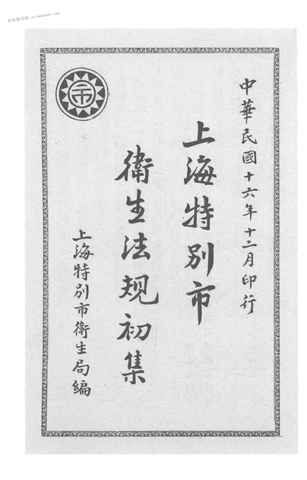 中華民國十六年十二月印行
上海特别市
衛生法規初集
上海特别市衛生局編